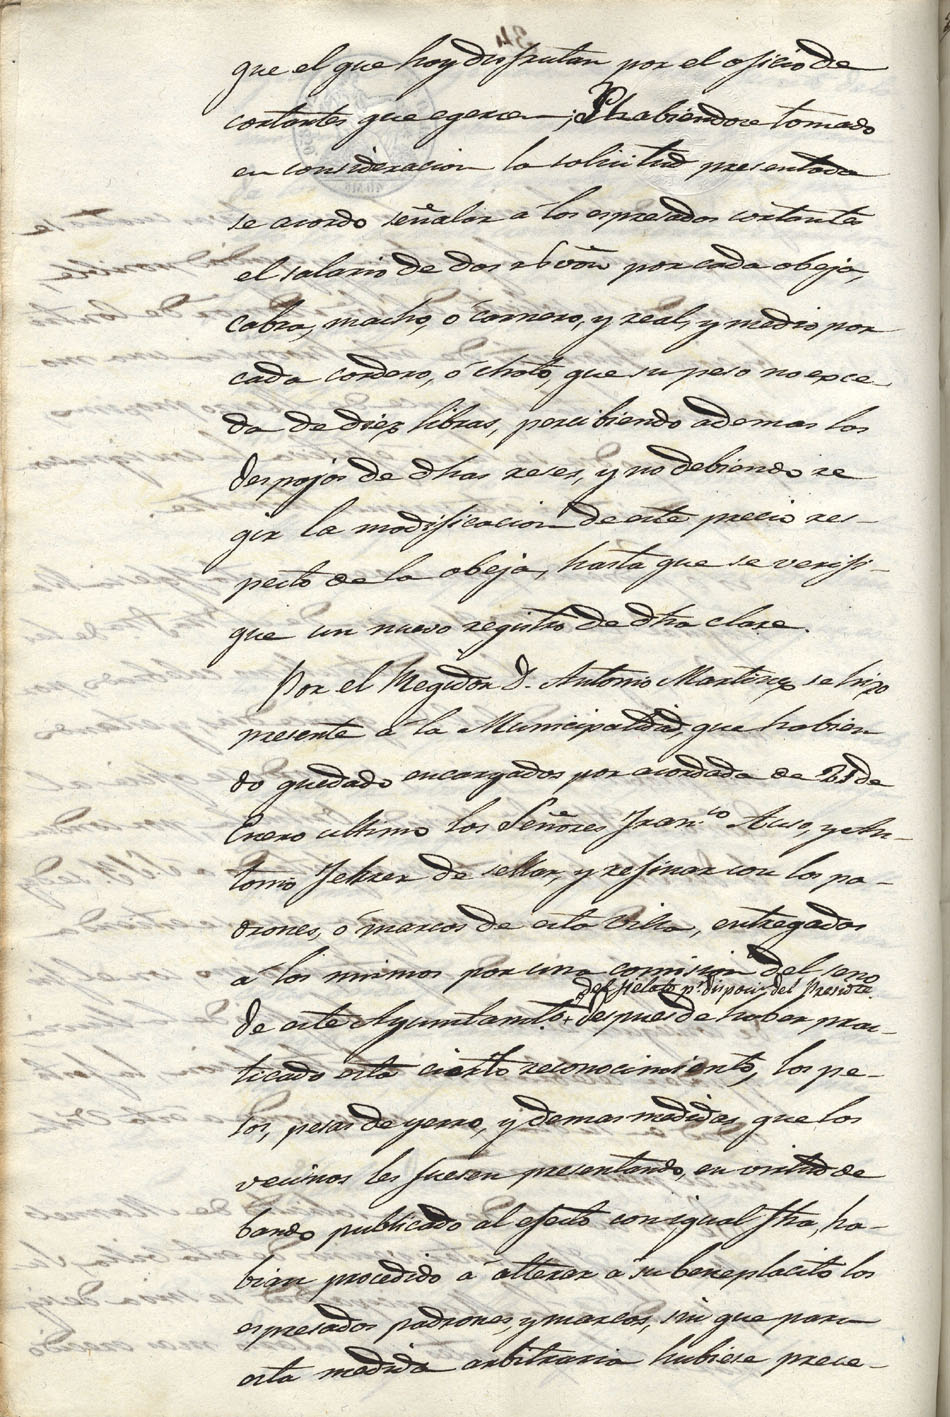 que el que hoy disfrutan por el oficio de
cortantes que egercen; Y habiendose tomado
en consideracion la solicitud presentada
se acordo señalar á los espresados cortantes
el salario de dos rs von por cada obeja,
cabra, macho, ó carnero, y real, y medio por
cada cordero, ó choto, que su peso no exce-
da de diez libras, percibiendo ademas los
despojos de dhas reses, y no debiendo re
gir la modificacion de este precio res-
pecto de la obeja, hasta que se verifi-
que un nuevo registro de dha clase.
Por el Regidor D. Antonio Martinez se hizo
presente á la Municipalidad, que habien
do quedado encargados por acordada de 21 de
Enero ultimo los Señores Franco Auso, y An-
tonio Jelizer de sellar, y refinar con los pa-
drones, ó marcos de esta Villa, entregados
á los mismos por una comision del seno
del fielato pr dispocin del Presidte
de este Ayuntamto + despues de haber prac-
ticado esta cierto reconocimiento, los pe-
sos, pesas de yerro, y demas medidas que los
vecinos les fuesen presentando, en virtud de
bando publicado al efecto con igual fha, ha-
bian procedido á alterar á su beneplacito los
espresados padrones, y marcos, sin que para
esta medida arbitraria hubiese prece-